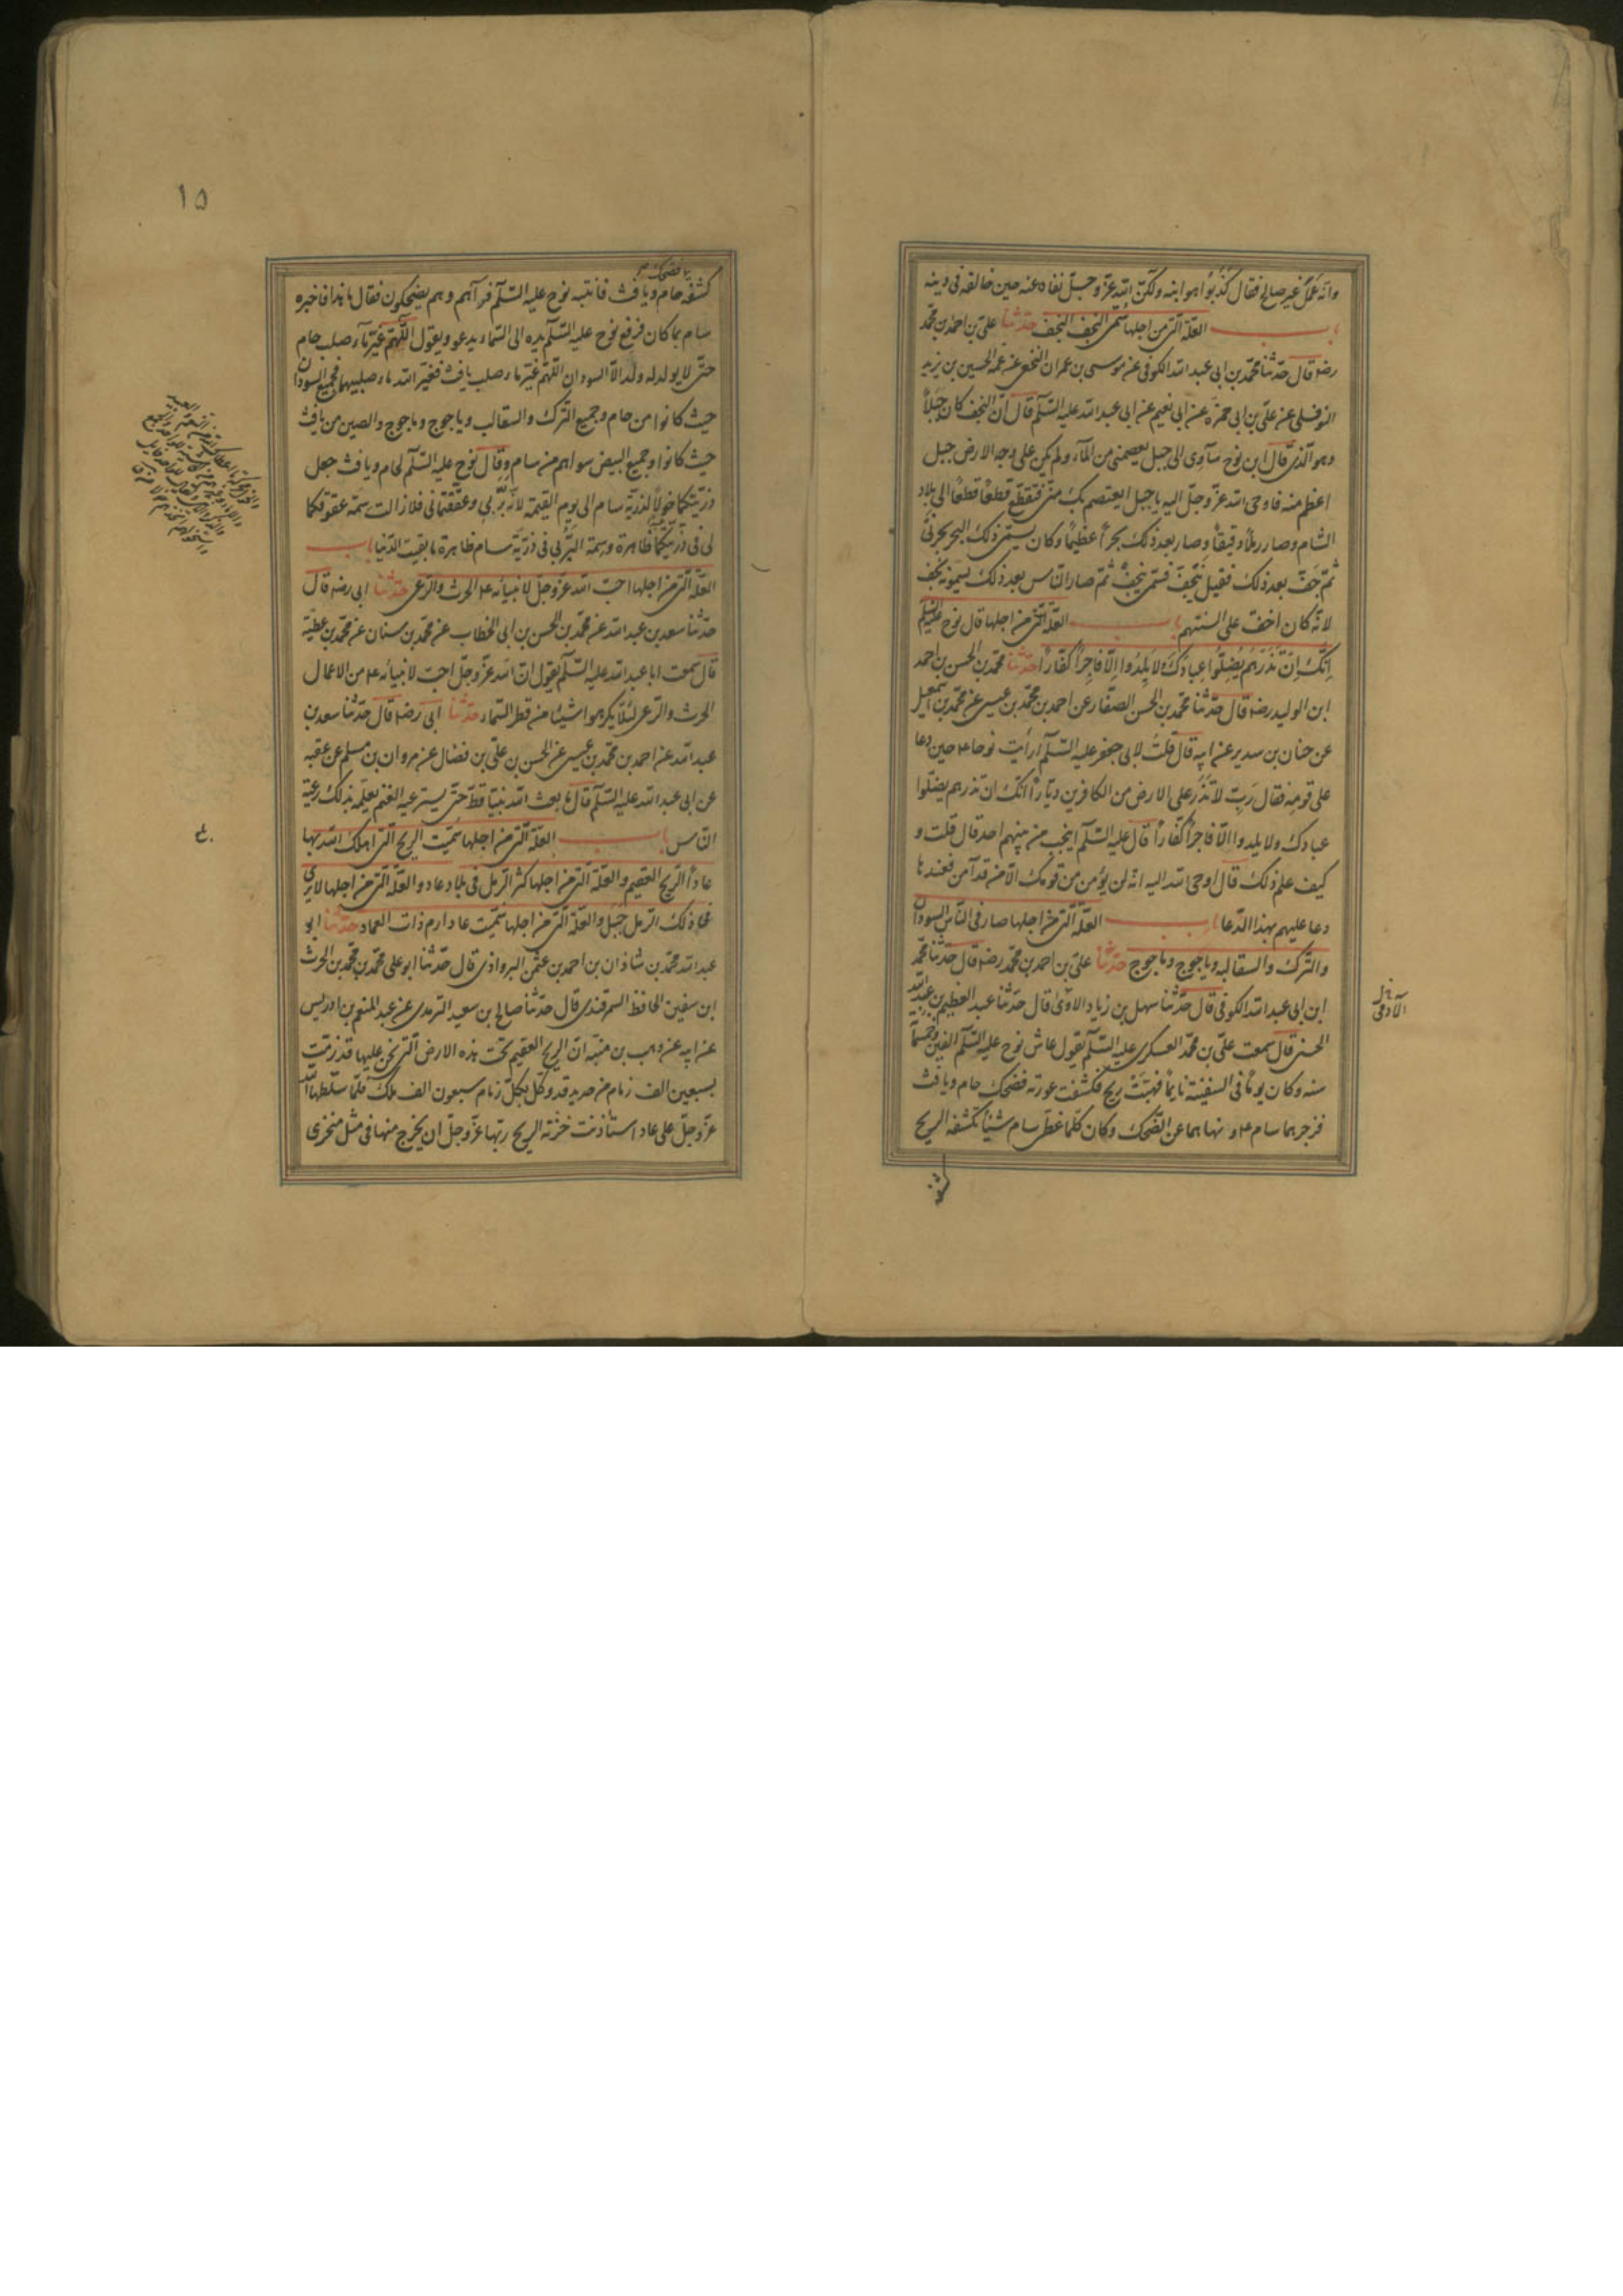 وانه عمل غير صالح فقال كذبوا هو ابنه ولكن الله عز وجل نفاه عنه حين خالفه فى دينه
باب العلة التى من اجلها سمى النجف النجف حدثنا على بن احمد بن محمد
رضه قال حدثنا محمد بن ابى عبد الله الكوفى عن موسى بن عمران النخعى عن عمه الحسين بن يزيد
النوفلى عن على بن ابى حمزه عن ابى نعيم عن ابى عبد الله عليه السلم قال ان النجف كان جبلا
وهو الذى قال ابن نوح سآوى الى جبل يعصمنى من المآء ولم يكن على وجه الارض جبل
اعظم منه فاوحى الله عز وجل اليه يا جبل ايعتصم بك منى فتقطع قطعا قطعا الى بلاد
الشام وصار رملا دقيقا وصار بعد ذلك بحرا عظيما وكان يسمى ذلك البحر بحر نى
ثم جف بعد ذلك فقيل نى جف فسمى نيجف ثم صار الناس بعد ذلك يسمونه نجف
لانه كان اخف على السنتهم باب العلة التى من اجلها قال نوح عليه السلم
انك ان تذرهم يضلوا عبادك ولا يلدوا الا فاجرا كفارا حدثنا محمد بن الحسن بن احمد
ابن الوليد رضه قال حدثنا محمد بن الحسن الصفار عن احمد بن محمد بن عيسى عن محمد بن اسمعيل
عن حنان بن سدير عن ابيه قال قلت لابى جعفر عليه السلم ارأيت نوحا ع حين دعا
على قومه فقال رب لا تذر على الارض من الكافرين ديارا انك ان تذرهم يضلوا
عبادك ولا يلدوا الا فاجرا كفارا قال عليه السلم انه لم ينجب من بينهم احد قال قلت و
كيف علم ذلك قال اوحى الله اليه انه لن يؤمن من قومك الا من قد آمن فعندها
دعا عليهم بهذا الدعا باب العلة التى من اجلها صار فى الناس السودان
والترك والسقالبه وياجوج وماجوج حدثنا على بن احمد بن محمد رضه قال حدثنا محمد
ابن ابى عبد الله الكوفى قال حدثنا سهل بن زياد الاوى قال حدثنا عبد العظيم بن عبد الله
الحسنى قال سمعت على بن محمد العسكرى عليه السلم يقول عاش نوح عليه السلم الفين وخمسمأ
سنه وكان يوما فى السفينة نايما فهبت ريح فكشفت عورته فضحك حام ويافث
فزجرهما سام ع ونهاهما عن الضحك وكان كلما غطى سام شيئا تكشفه الريح
الآدمى
كشفه
١٥
كشفه حام ويافث فانتبه نوح عليه السلم فرآهم وهم يضحكون فقال ما هذا فاخبره
سام بما كان فرفع نوح عليه السلم يده الى السماء يدعو ويقول اللهم غير مآء صلب حام
حتى لا يولد له ولد الا السودان اللهم غير ماء صلب يافث فغير الله ماء صلبيهما فجميع السودان
حيث كانوا من حام وجميع الترك والسقالب وياجوج وماجوج والصين من يافث
حيث كانوا وجميع البيض سواهم من سام وقال نوح عليه السلم لحام ويافث جعل
ذريتكما خولا لذرية سام الى يوم القيمة لانه بر بى وعققتمانى فلا زالت سمة عقوقكما
لى فى ذريتكما ظاهرة وسمة البر بى فى ذرية سام ظاهرة ما بقيت الدنيا باب
العلة التى من اجلها احب الله عز وجل لانبيائه ع الحرث والرعى حدثنا ابى رضه قال
حدثنا سعد بن عبد الله عن محمد بن الحسن بن ابى الخطاب عن محمد بن سنان عن محمد بن عطيه
قال سمعت ابا عبد الله عليه السلم يقول ان الله عز وجل احب لانبيائه ع من الاعمال
الحرث والرعى لئلا يكرهوا شيئا من قطر السماء حدثنا ابى رضه قال حدثنا سعد بن
عبد الله عن احمد بن محمد بن عيسى عن الحسن بن على بن فضال عن مروان بن مسلم عن عقبه
عن ابى عبد الله عليه السلم قال ما بعث الله نبيا قط حتى يسترعيه الغنم يعلمه بذلك رعية
الناس باب العلة التى من اجلها سميت الريح التى اهلك الله بها
عادا الريح العقيم والعلة التى من اجلها كثر الرمل فى بلاد عاد والعلة التى من اجلها لا يرى
فى ذلك الرمل جبل والعلة التى من اجلها سميت عاد ارم ذات العماد حدثنا ابو
عبد الله محمد بن شاذان بن احمد بن عثمن البروادى قال حدثنا ابو على محمد بن محمد بن الحرث
ابن سفين الحافظ السمرقندى قال حدثنا صالح بن سعيد الترمدى عن عبد المنعم بن ادريس
عن ابيه عن وهب بن منبه ان الريح العقيم تحت هذه الارض التى نحن عليها قد زمت
بسبعين الف زمام من حديد قد وكل بكل زمام سبعون الف ملك فلما سلطها الله
عز وجل على عاد استأذنت خزنة الريح ربها عز وجل ان يخرج منها فى مثل منخرى